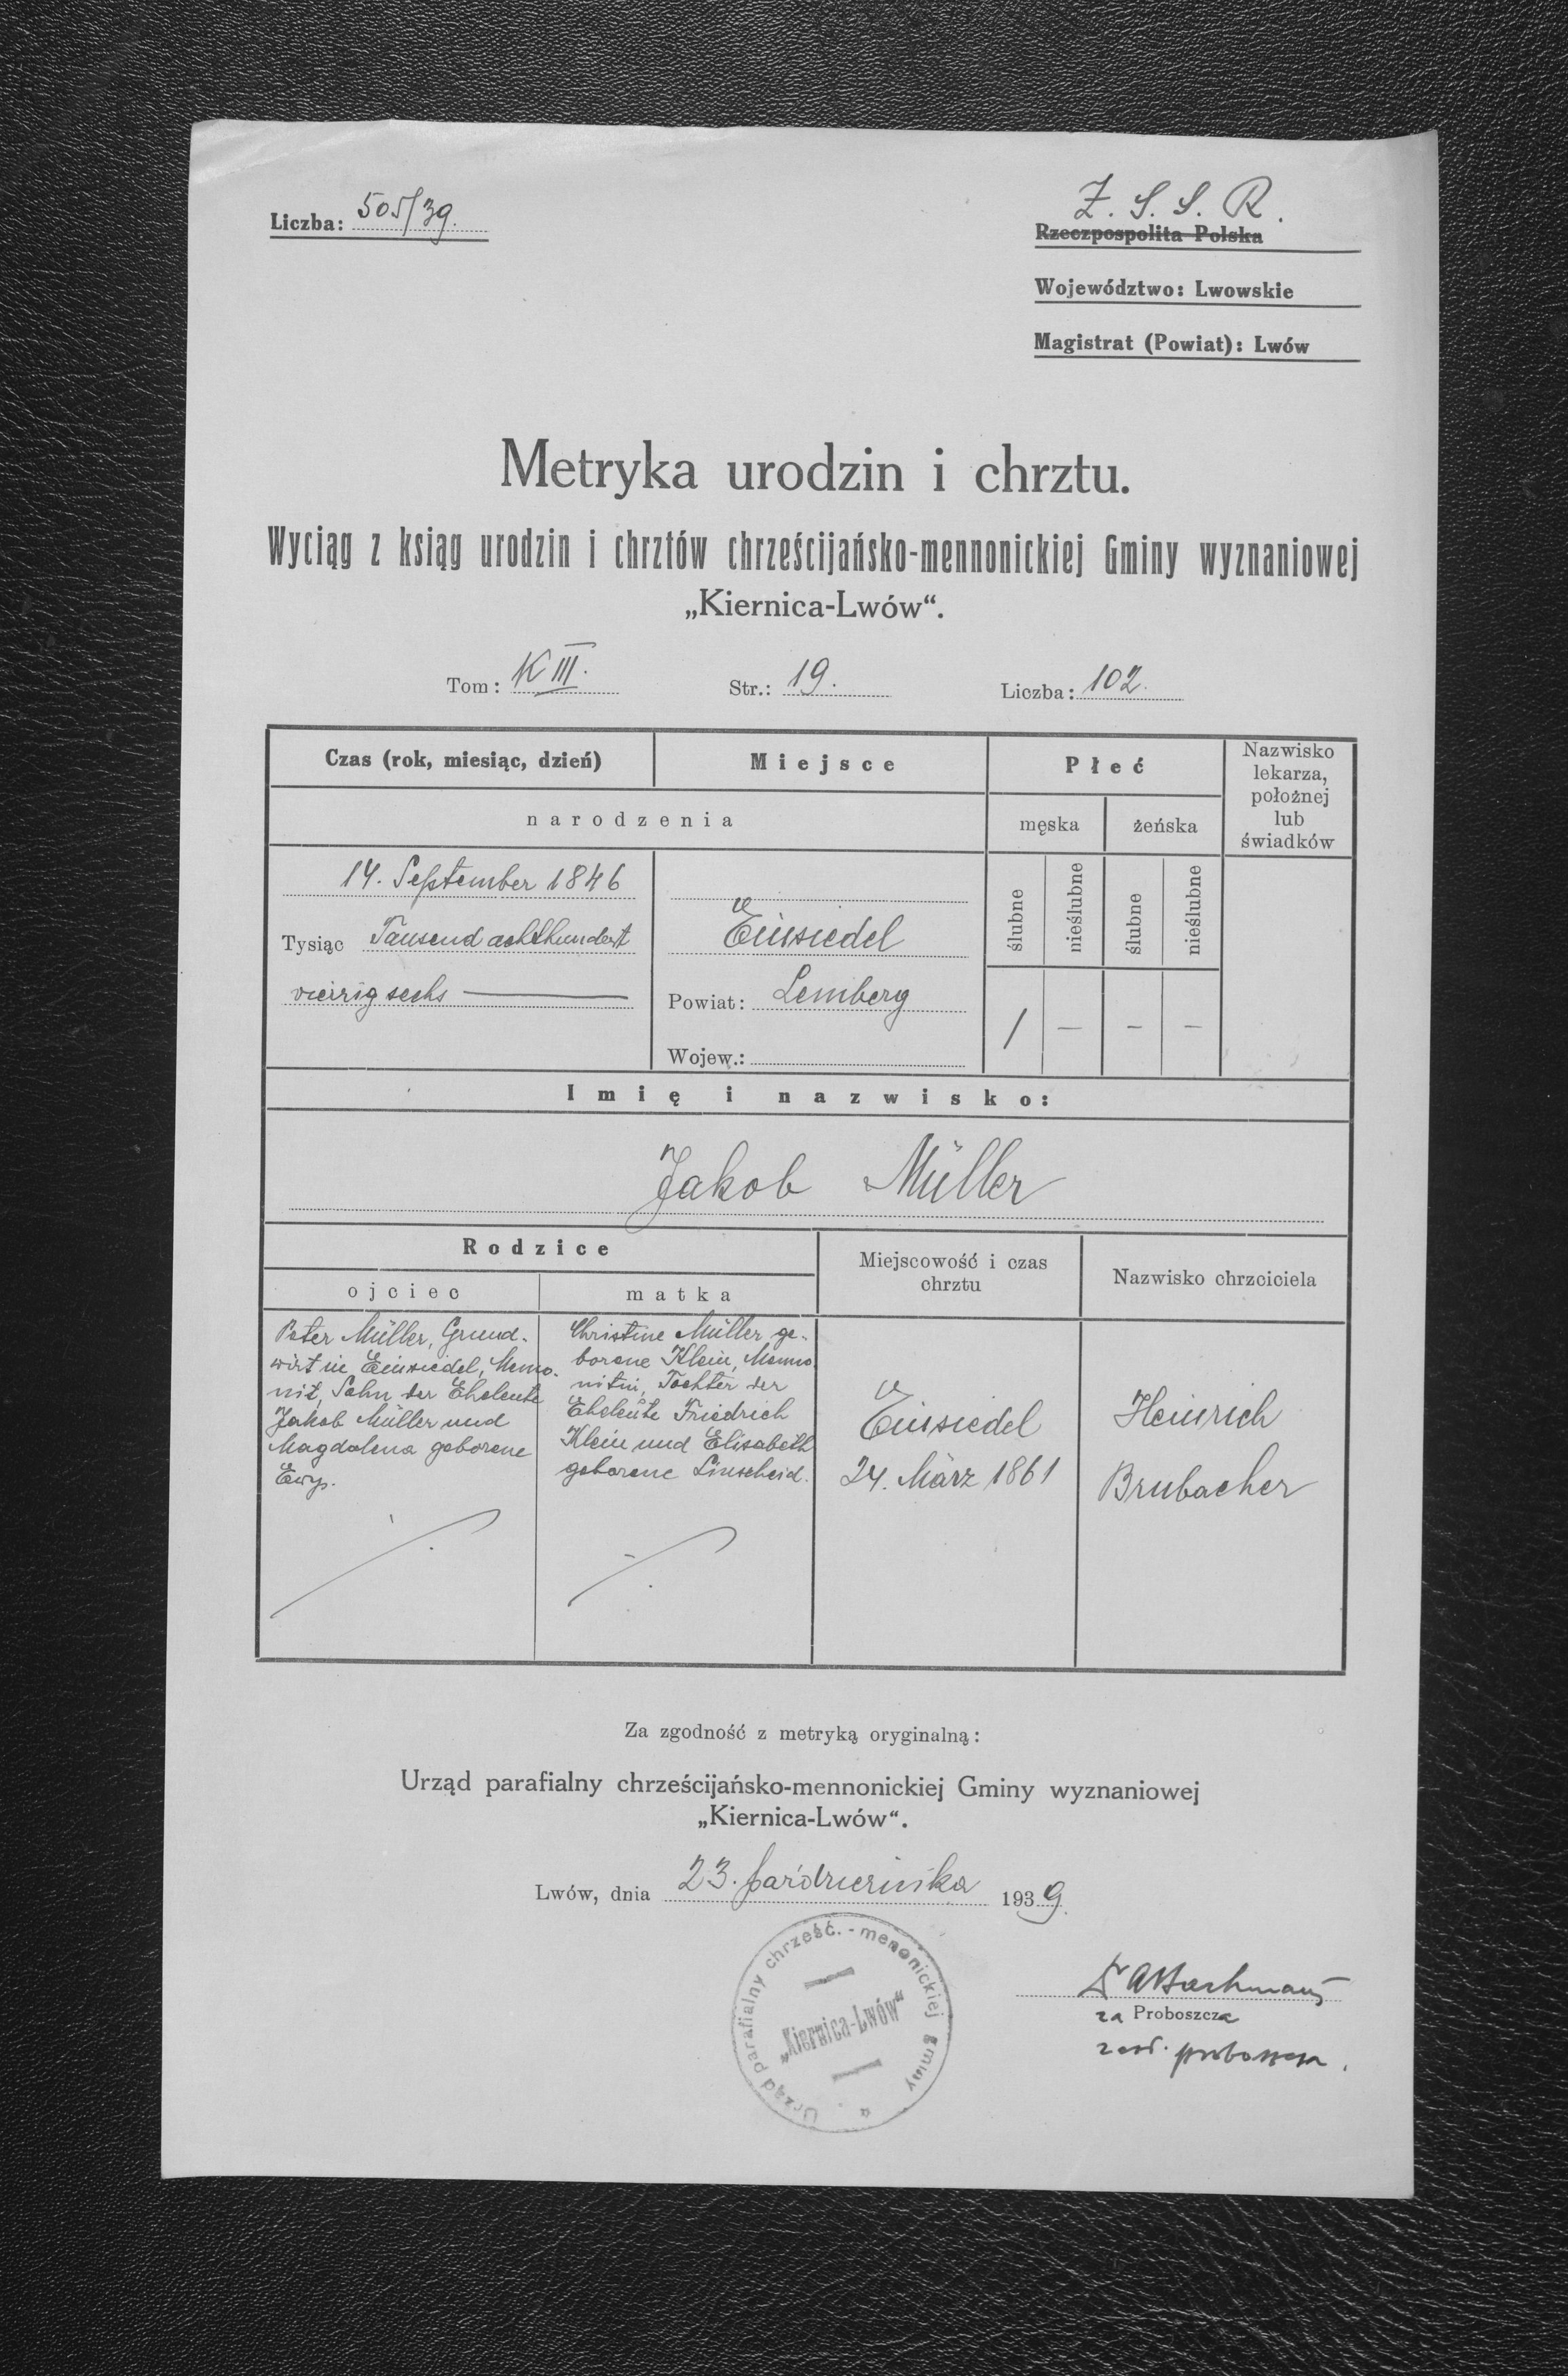 Liczba: 505/39.
Z. S. S. R.
Rzeczpospolita Polska
Województwo: Lwowskie
Magistrat (Powiat): Lwów
Metryka urodzin i chrztu.
Wyciąg z ksiąg urodzin i chrztów chrześcijańsko-mennonickiej Gminy wyznaniowej
„Kiernica-Lwów“.
Tom: K III. Str.: 19. Liczba: 102.
Czas (rok, miesiąc, dzień) Miejsce Płeć
Nazwisko
lekarza,
położnej
lub
świadków
narodzenia męska żeńska
ślubne nieślubne ślubne nieślubne
14. September 1846
Tysiąc Tausend achthundert
vierzig sechs —
Einsiedel
Powiat: Lemberg
Wojew.:
/ — — —
Imię i nazwisko:
Jakob Müller
Rodzice
ojciec matka
Miejscowość i czas
chrztu
Nazwisko chrzciciela
Peter Müller, Grund-
wirt in Einsiedel, Menno-
nit, Sohn der Eheleute
Jakob Müller und
Magdalena geborene
Ewy.
Christine Müller ge-
borene Klein, Menno
nitin, Tochter der
Eheleute Friedrich
Klein und Elisabeth
geborene Linscheid.
Einsiedel
24. März 1861
Heinrich
Brubacher
Za zgodność z metryką oryginalną:
Urząd parafialny chrześcijańsko-mennonickiej Gminy wyznaniowej
„Kiernica-Lwów“.
Lwów, dnia 23. października 1939.
Urząd parafialny chrześć.-menonickiej gminy
„Kiernica-Lwów“
Bachmann
za Proboszcza
zast. proboszcza.